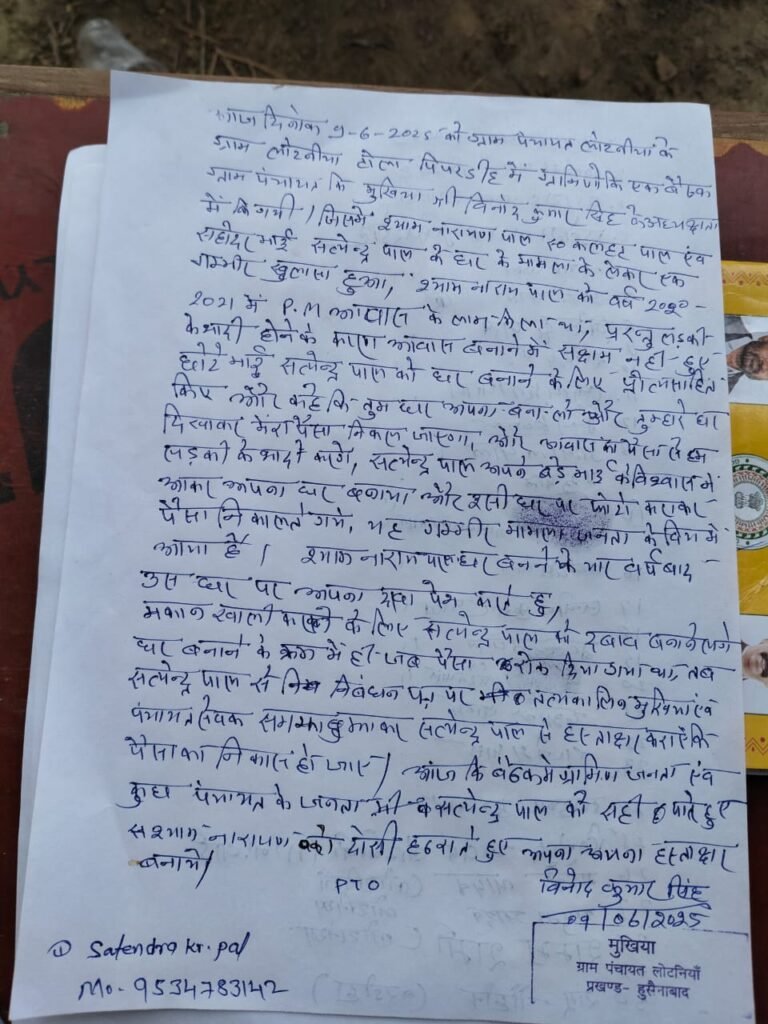 आज दिनांक 9-6-2025 को ग्राम पंचायत लोटनीयां के
ग्राम लोटनीया टोला पिपरडीह में ग्रामिणो कि एक बैठक
ग्राम पंचायत कि मुखिया श्री विनोद कुमार सिंह के अध्यक्षता
में कि गयी। जिसमें श्याम नारायण पाल स० कलहर पाल एंव
सहोदर भाई सत्येन्द्र पाल के घर के मामला के लेकर एक
गम्भीर खुलासा हुआ, श्याम नारायण पाल को वर्ष 2020-
2021 में P.M आवास के लाभ मिला था, परन्तु लड़की
के शादी होने के कारण आवास बनाने में सक्षम नही हुए
छोटे भाई सत्येन्द्र पाल को घर बनाने के लिए प्रोत्साहित
किए और कहे कि तुम घर अपना बना लो और तुम्हारे घर
दिखाकर मेरा पैसा निकल जाएगा, और आवास का पैसा से हम
लड़की के शादी करेगे, सत्येन्द्र पाल अपने बड़े भाई के विश्वास में
आकर अपना घर बनाया और इसी घर पर फोटो कराकर
पैसा निकालते गये, यह गम्भीर मामला जनता के बिच में
आया है। श्याम नारायण पाल घर बनने के चार वर्ष बाद
उस घर पर अपना दावा पेश करते हु,
मकान खाली कराने के लिए सत्येन्द्र पाल को दबाव बनाने लगे
घर बनाने के क्रम में ही जब पैसा रोक दिया गया था, तब
सत्येन्द्र पाल से निबंधन पत्र पर तत्कालिन मुखिया एंव
पंचायत सेवक समझा बुझाकर सत्येन्द्र पाल से हस्ताक्षर कराएं कि
पैसा का निकास हो जाए। आज कि बैठक मे ग्रामिण जनता एंव
कुछ पंचायत के जनता भी सत्येन्द्र पाल को सही पाते हुए
श्याम नारायण को दोसी ठहराते हुए अपना अपना हस्ताक्षर
बनाये।
PTO
विनोद कुमार सिंह
09/06/2025
मुखिया
ग्राम पंचायत लोटनियाँ
प्रखण्ड- हुसैनाबाद
① Satendra kr. pal
Mo. - 9534783142